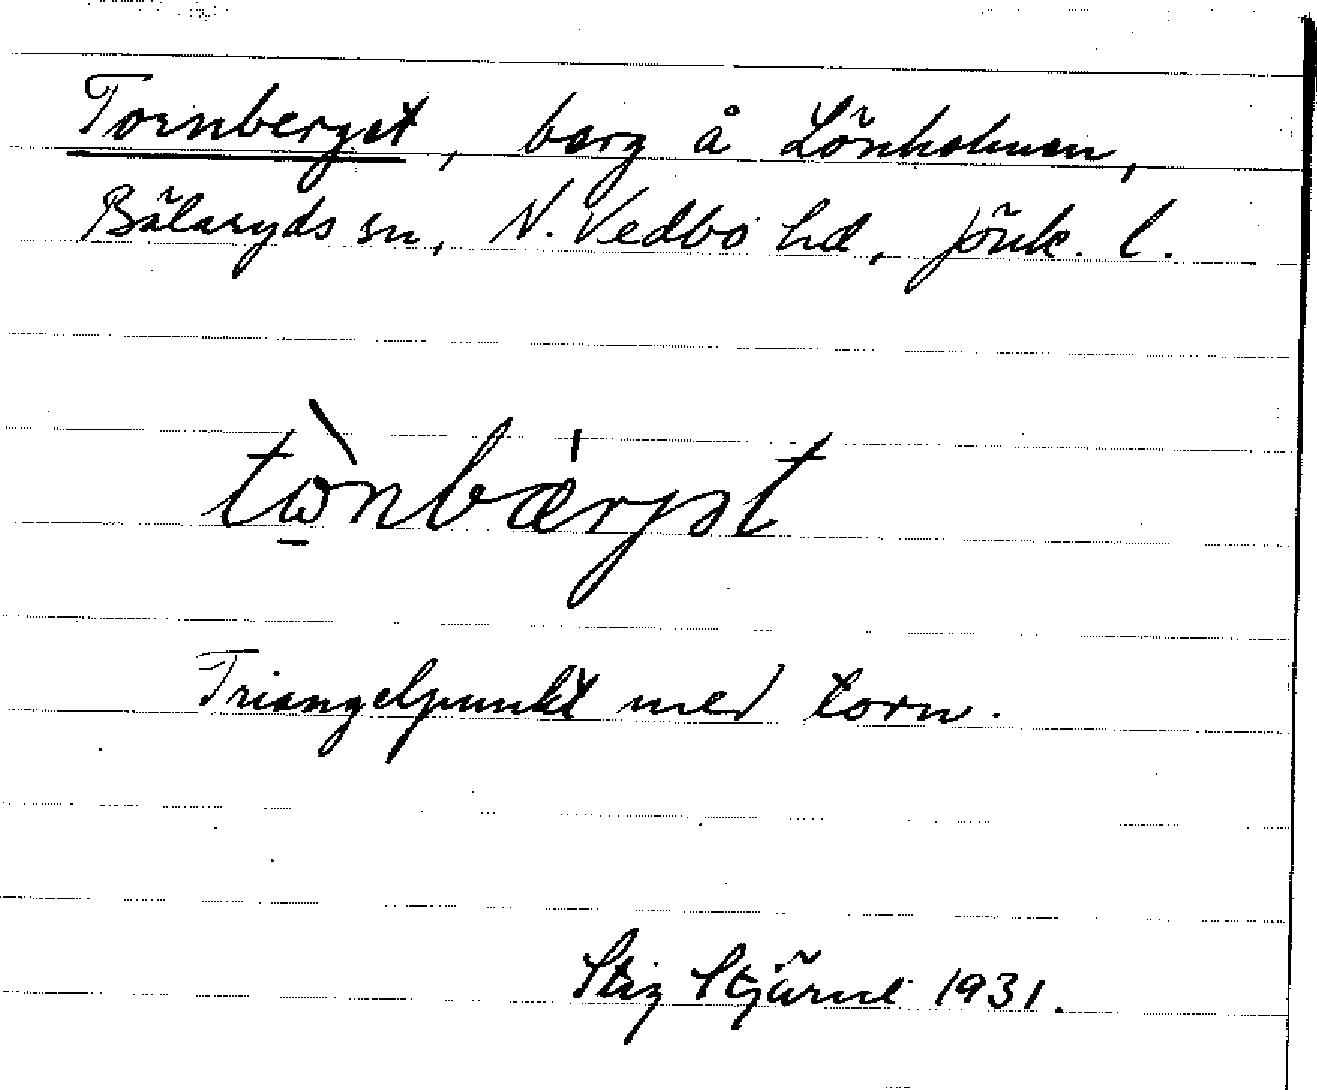 Tornberget, berg å Lönholmen,
Bälaryds sn, N. Vedbo hd, Jönk. l.
tònbærjət
Triangelpunkt med torn.
Stig Stjärne 1931.